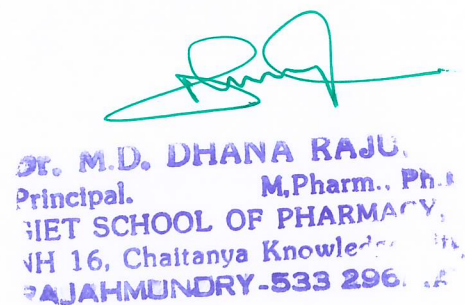 Dr. M.D. DHANA RAJU,
Principal. M,Pharm., Ph.
GIET SCHOOL OF PHARMACY,
NH 16, Chaitanya
RAJAHMUNDRY-533 296.